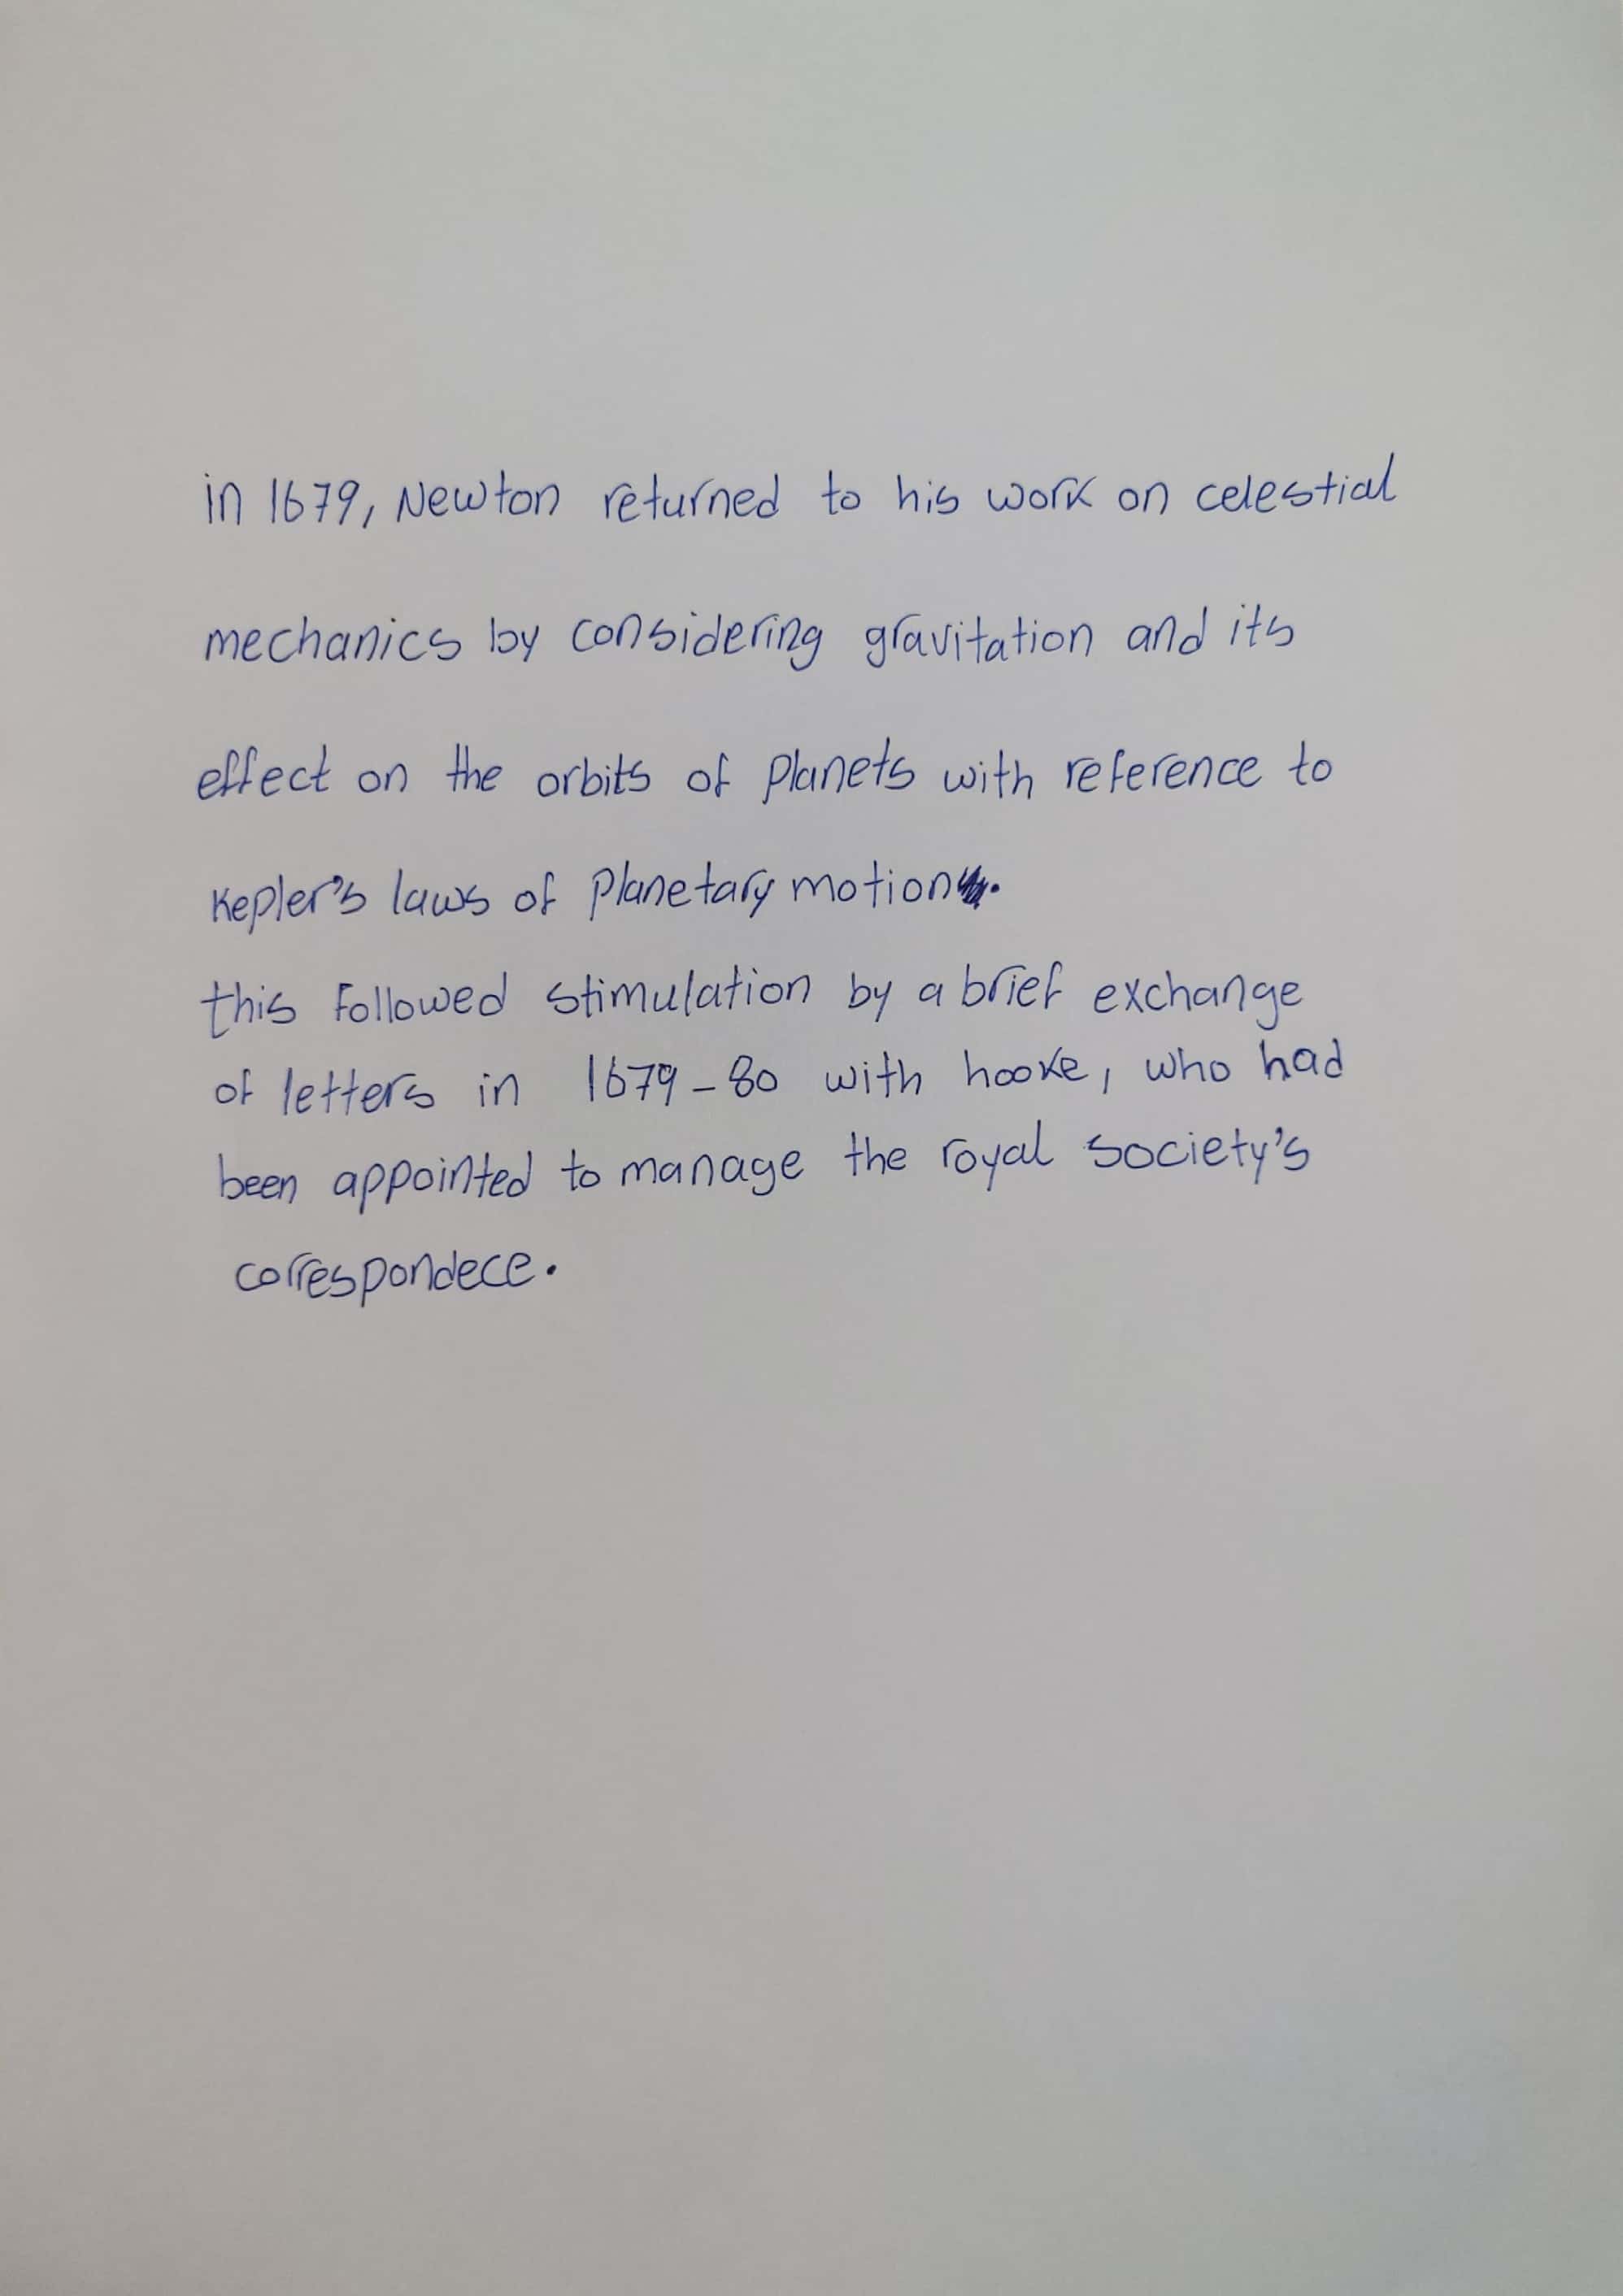 in 1679, Newton returned to his work on celestial
mechanics by considering gravitation and its
effect on the orbits of planets with reference to
Kepler's laws of planetary motion.
this followed stimulation by a brief exchange
of letters in 1679-80 with hooke, who had
been appointed to manage the royal society's
correspondece.